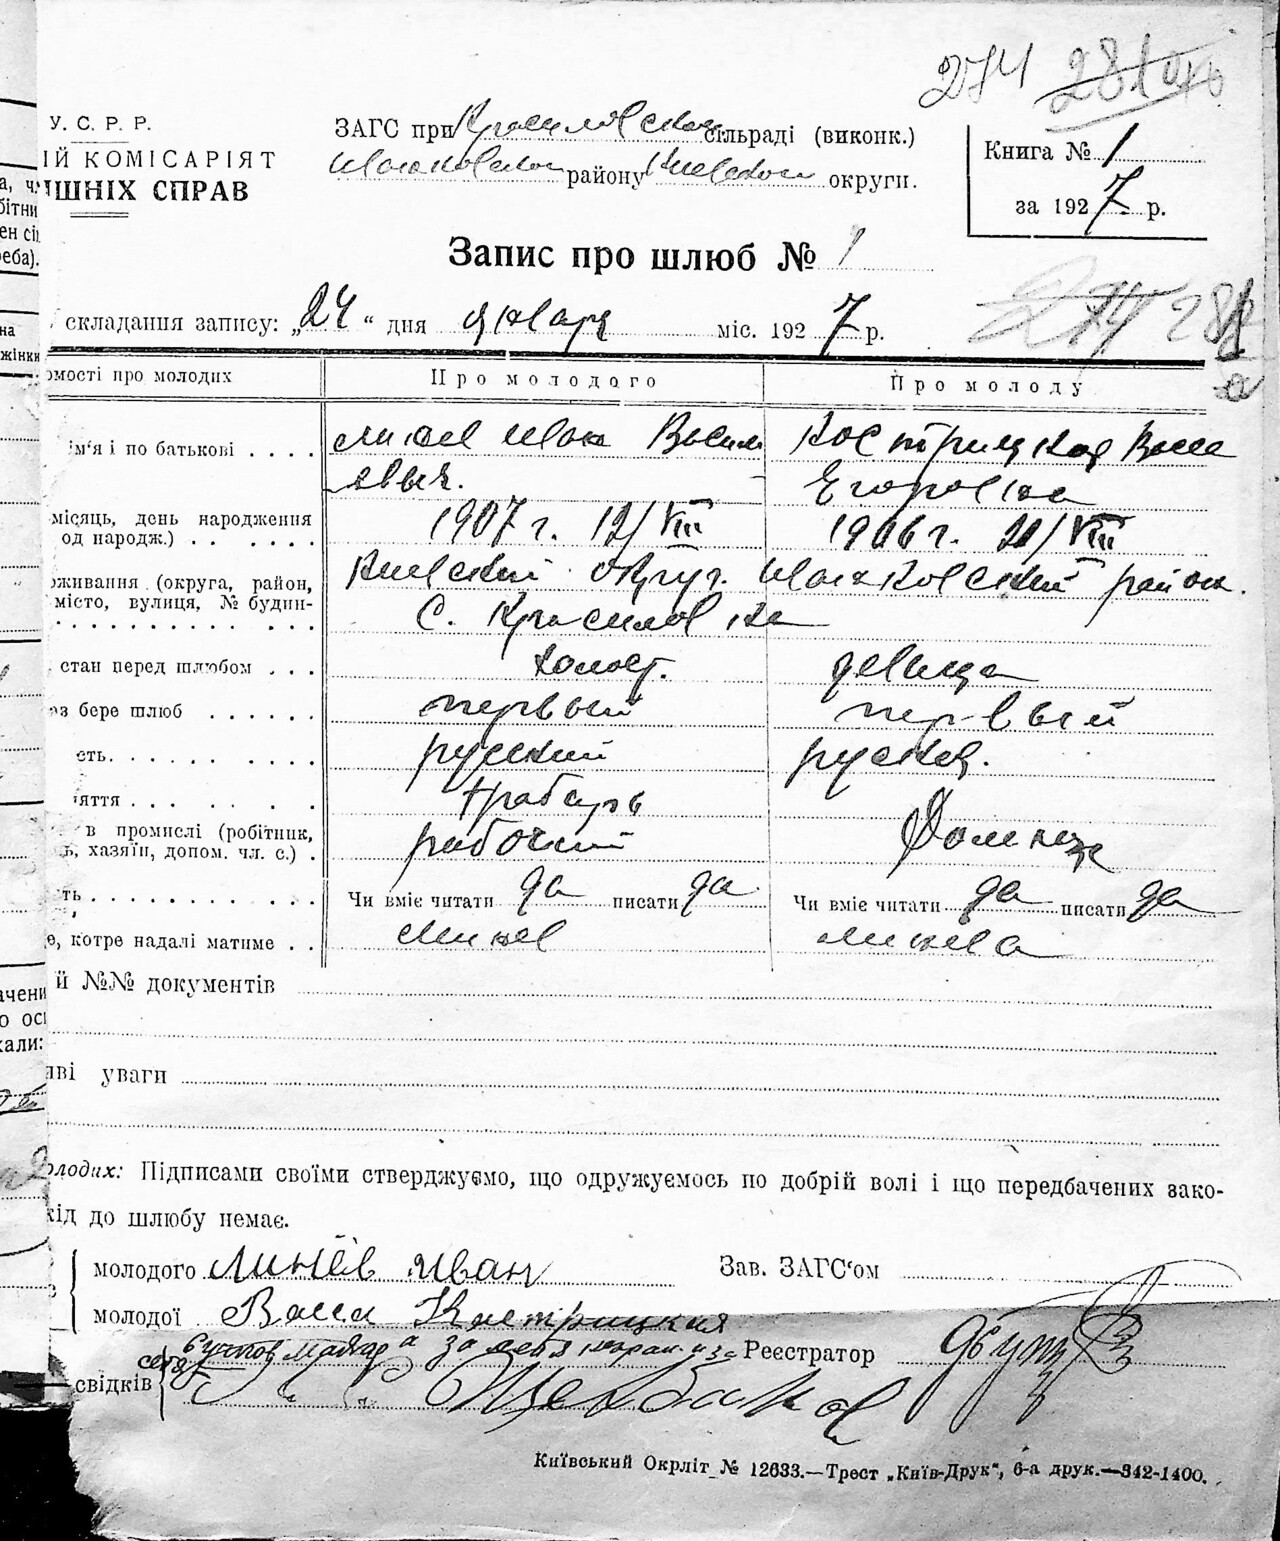 274 281
У. С. Р. Р.
ІЙ КОМІСАРІЯТ
ІШНІХ СПРАВ
ЗАГС при Красиловском сільраді (виконк.)
району Киевской округи.
Книга № 1
за 1927 р.
Запис про шлюб № 1
складання запису: „24“ дня января міс. 1927 р.
274 281
а
омості про молодих Про молодого Про молоду
ім'я і по батькові . . . . Линев Иван Василь Кострицкая Васса
евич. Егоровна
місяць, день народження 1907 г. 12/VIII 1906 г. 21/VIII
од народж.) . . . . . . .
оживання (округа, район, Киевский округ. район.
місто, вулиця, № будин- С. Красиловка
стан перед шлюбом . . . холост. девица
аз бере шлюб . . . . . . первый первый
сть. . . . . . . . . . . русский русская.
няття . . . . . . . грабарь
в промислі (робітник, рабочий
ь, хазяїн, допом. чл. с.) .
ть . . . . . . . . . . . Чи вміє читати да писати да Чи вміє читати да писати да
е, котре надалі матиме . . Линев Линева
й №№ документів
иві уваги
олодих: Підписами своїми стверджуємо, що одружуємось по добрій волі і що передбачених зако-
кід до шлюбу немає.
молодого Линёв Иван Зав. ЗАГС‘ом
молодої Васса Кострицкая
Реєстратор
свідків
Київський Окрліт № 12633.—Трест „Київ-Друк“, 6-а друк.—342-1400.